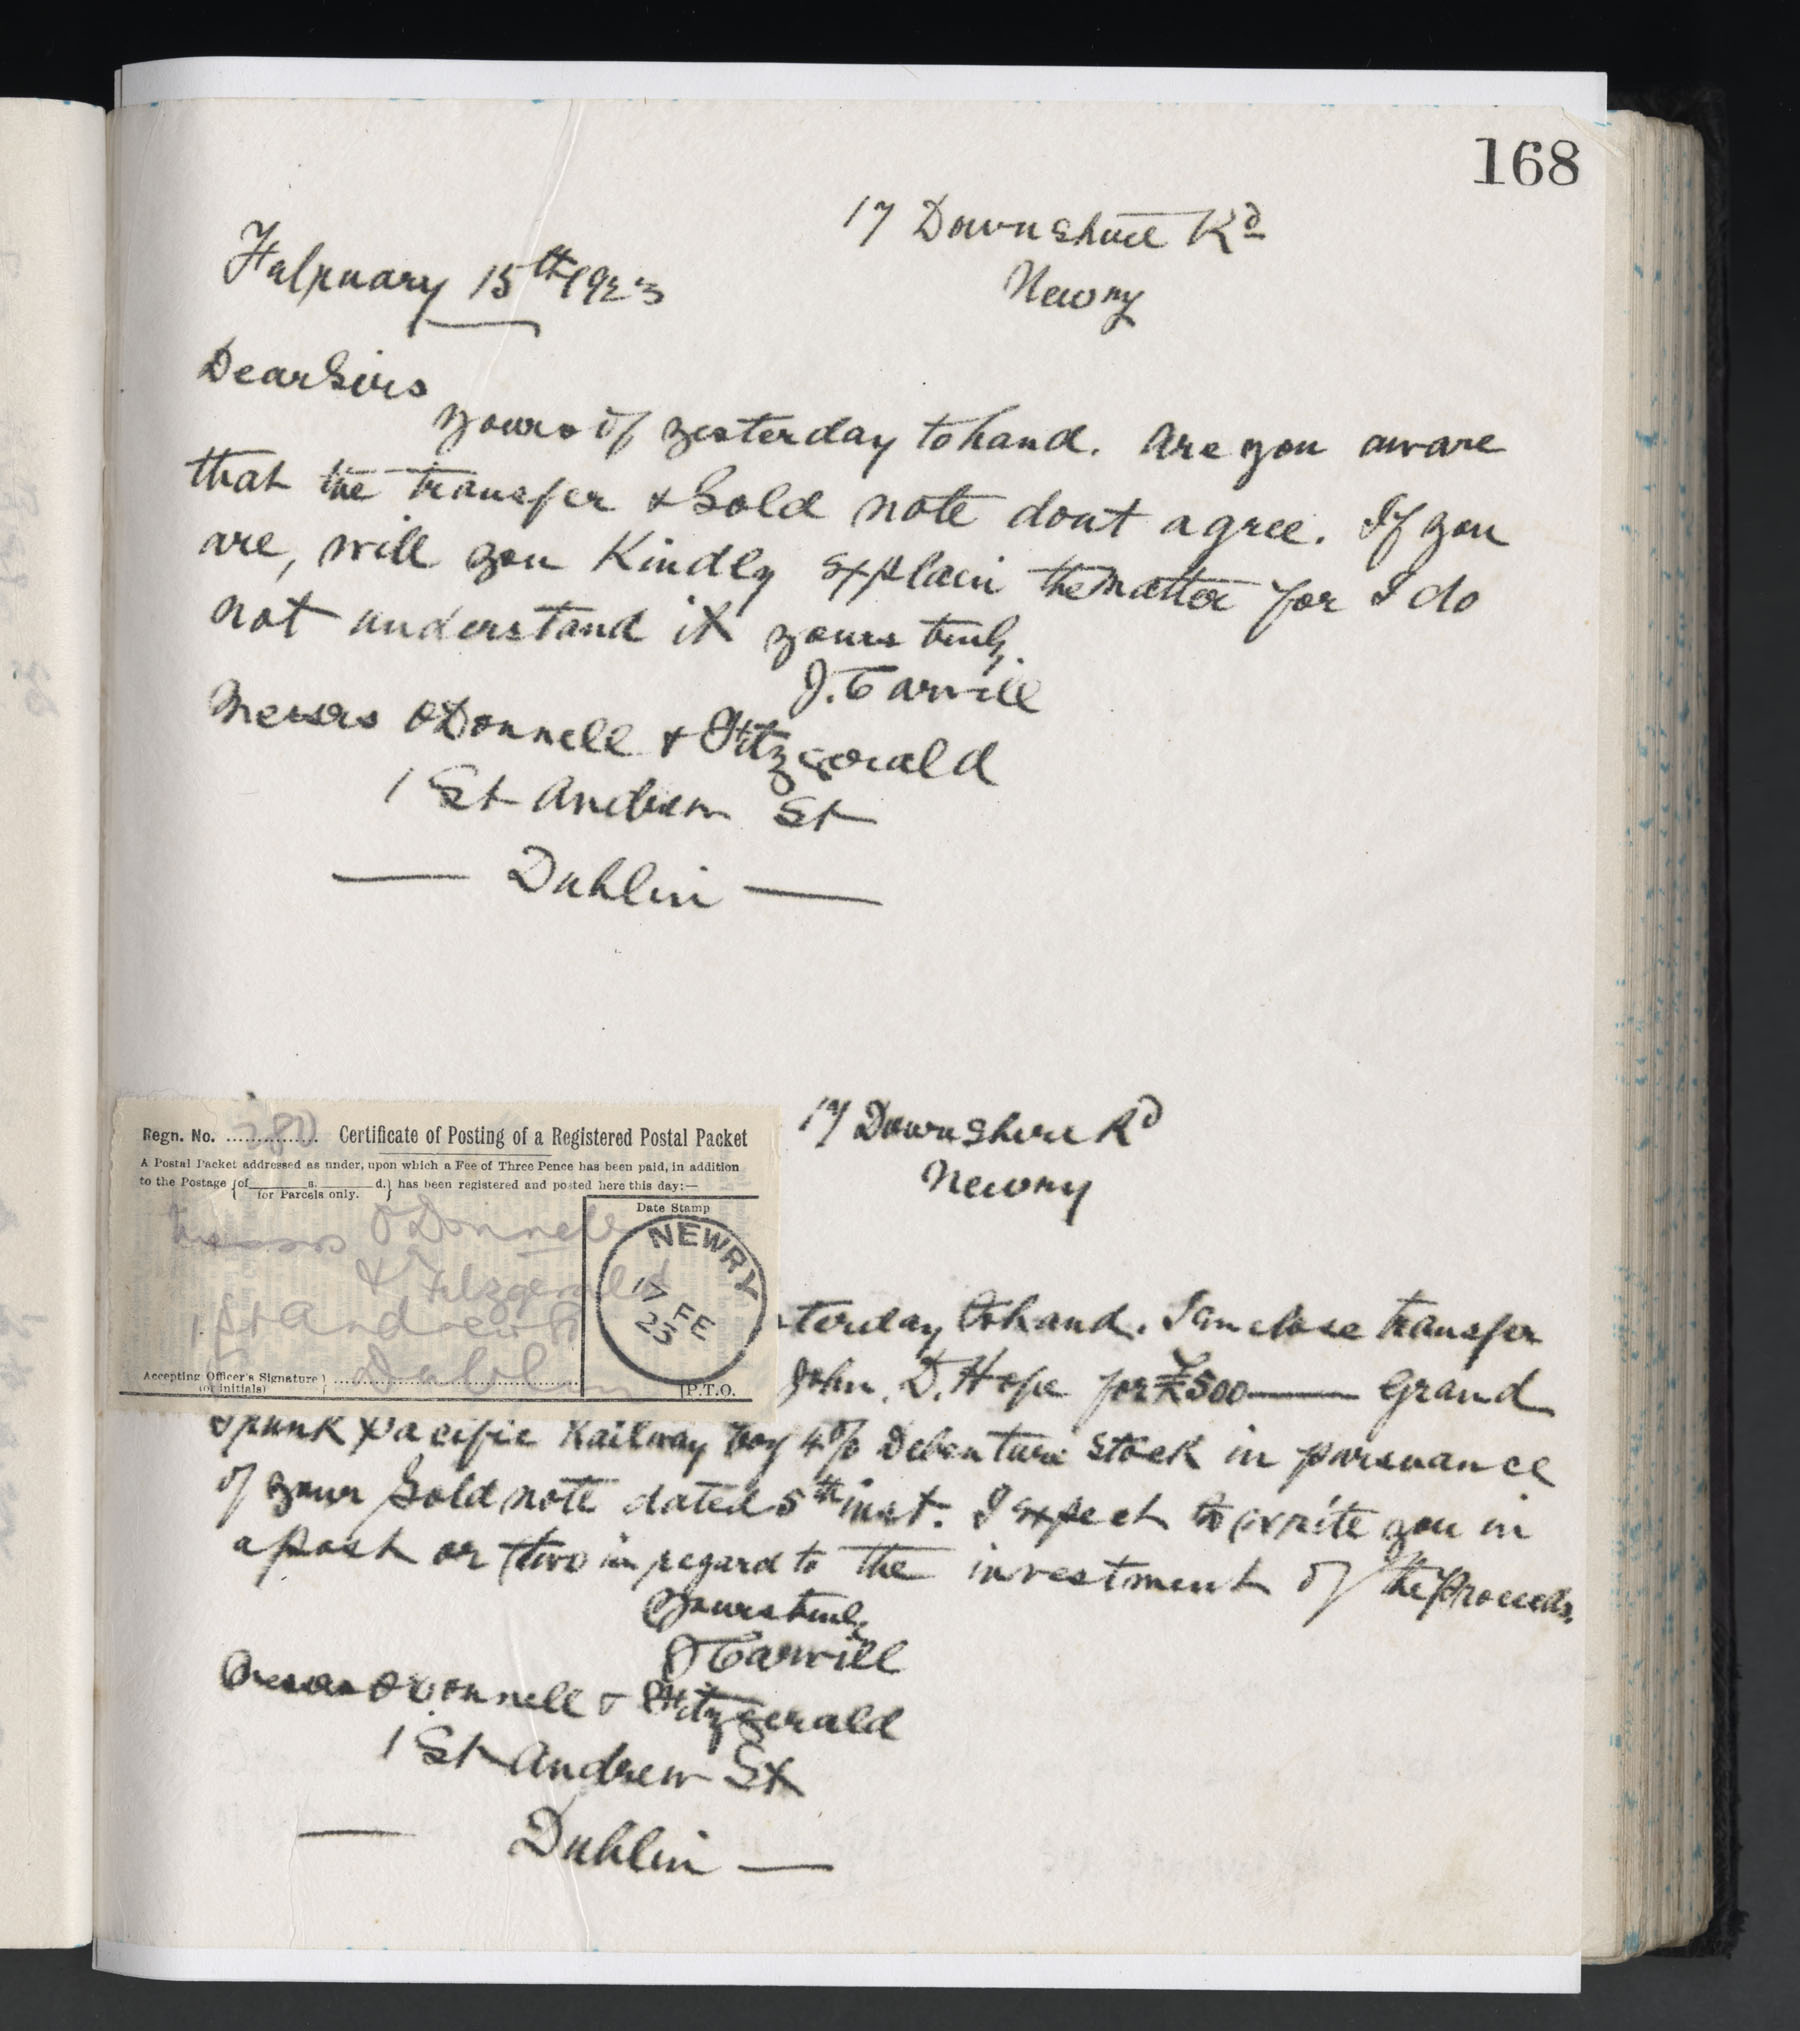 168
17 Downshire Rd
Newry
February 15th 1923
Dear Sirs
yours of yesterday to hand. Are you aware
that the transfer & Sold note dont agree. If you
are, will you Kindly explain the matter for I do
not understand it yours truly
J. Carvill
Messrs O'Donnell & Fitzgerald
1 St Andrew St
Dublin
17 Downshire Rd
Newry
Regn. No. 780 Certificate of Posting of a Registered Postal Packet
A Postal Packet addressed as under, upon which a Fee of Three Pence has been paid, in addition
to the Postage {of s. d.} has been registered and posted here this day:—
for Parcels only.
Date Stamp
Messrs O'Donnell
& Fitzgerald
1 St Andrew St
Dublin
NEWRY
17 FE
23
Accepting Officer's Signature)
(or initials)
P.T.O.
terday to hand. I enclose transfer
John. D. Hope for £500 — Grand
Trunk Pacific Railway Coy 4% Debenture Stock in pursuance
of your Sold note dated 5th inst. I expect to write you in
a post or two in regard to the investment of the proceeds.
Yours truly
J Carvill
Messrs O'Donnell & Fitzgerald
1 St Andrew St
Dublin